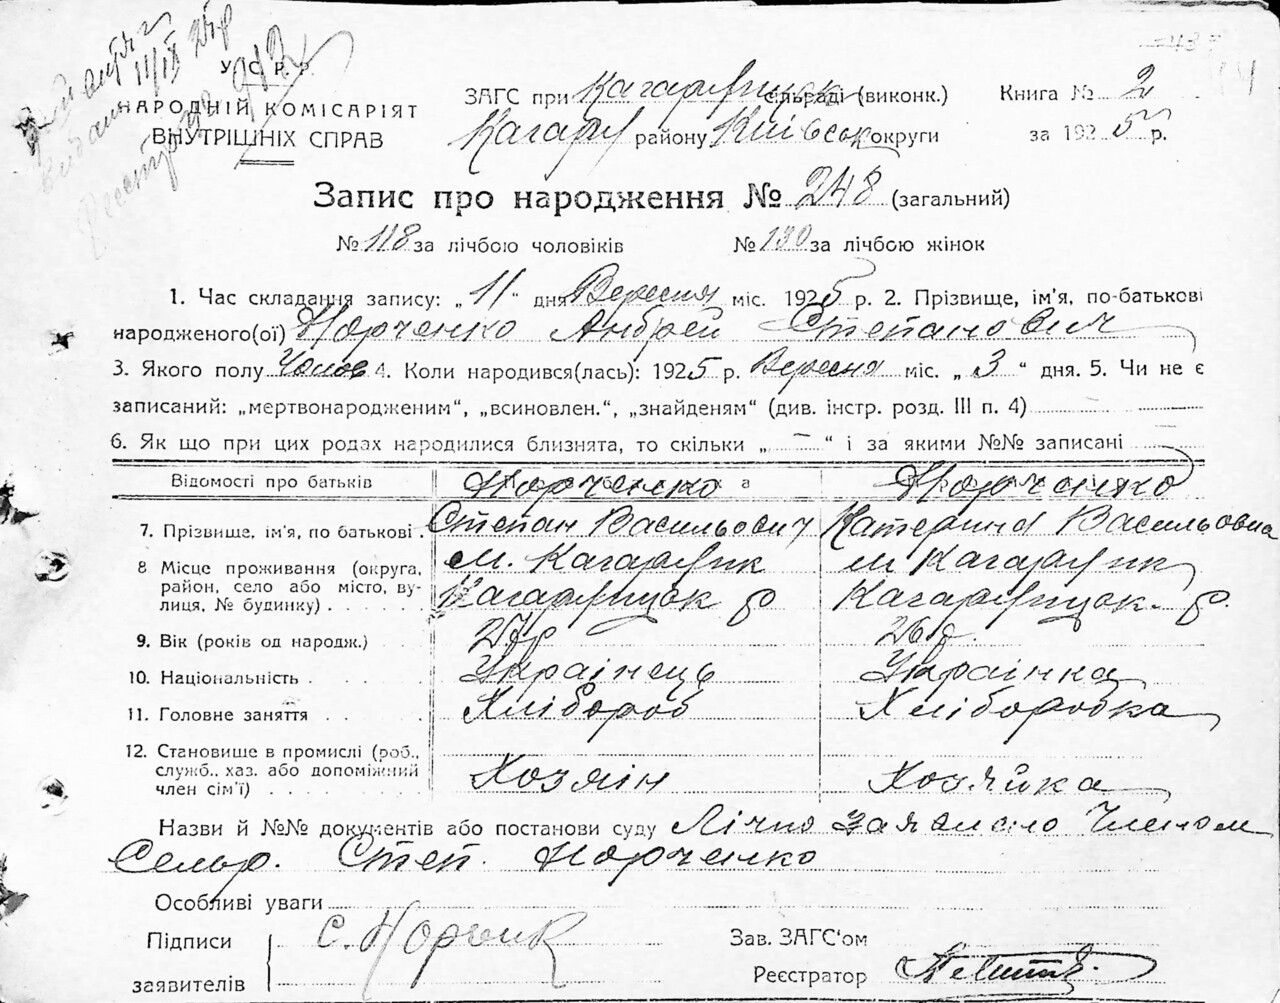 У. С. Р. Р.
НАРОДНІЙ КОМІСАРІЯТ
ВНУТРІШНІХ СПРАВ
11/IX 25 р
ЗАГС при Кагарлицьк сільраді (виконк.) Книга № 2
Кагарл району Київськ округи за 1925 р.
Запис про народження № 248 (загальний)
№ 118 за лічбою чоловіків № 130 за лічбою жінок
1. Час складання запису: „ 11 “ дня Вересня міс. 1925 р. 2. Прізвище, ім'я, по-батькові
народженого(ої) Норченко Андрей Степанович
3. Якого полу Чолов 4. Коли народився(лась): 1925 р. Вересня міс. „ 3 “ дня. 5. Чи не є
записаний: „мертвонародженим“, „всиновлен.“, „знайденям“ (див. інстр. розд. III п. 4)
6. Як що при цих родах народилися близнята, то скільки „ — “ і за якими №№ записані
Відомості про батьків Норченко Норченко
7. Прізвище, ім'я, по батькові . Степан Васильович Катерина Васильовна
8 Місце проживання (округа, м. Кагарлик м Кагарлик
район, село або місто, ву-
лиця, № будинку) . . . . . Кагарлицьк р Кагарлицьк. р.
9. Вік (років од народж.) 27 р 26 р.
10. Національність . . . . Українець Українка
11. Головне заняття . . . . Хлібороб Хліборобка
12. Становище в промислі (роб.,
служб., хаз. або допоміжний
член сім'ї) . . . . . . . Хозяін Хозяйка
Назви й №№ документів або постанови суду Лічно заявлено Членом
Сельр. Степ. Норченко
Особливі уваги
Підписи С. Норченк Зав. ЗАГС'ом
заявителів Реєстратор